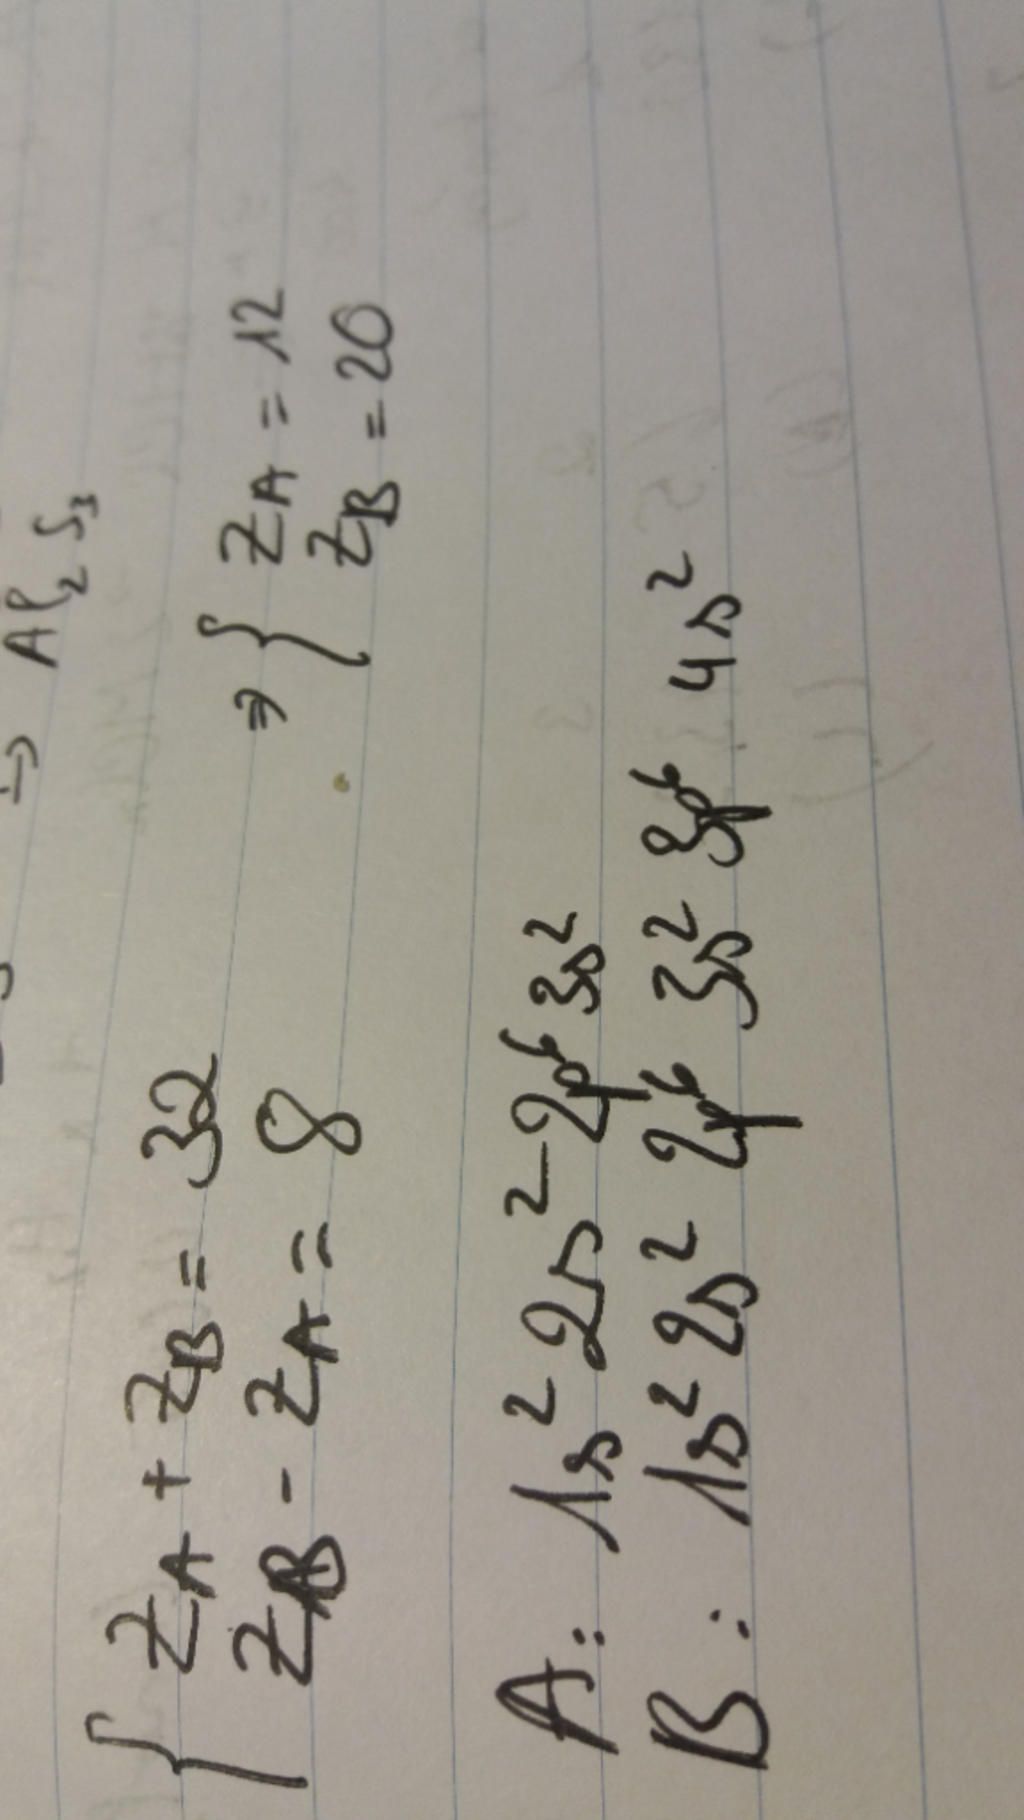 → Al₂S₃
{ Z_A + Z_B = 32 ⇒ { Z_A = 12
Z_B - Z_A = 8 Z_B = 20
A: 1s² 2s² 2p⁶ 3s²
B: 1s² 2s² 2p⁶ 3s² 3p⁶ 4s²